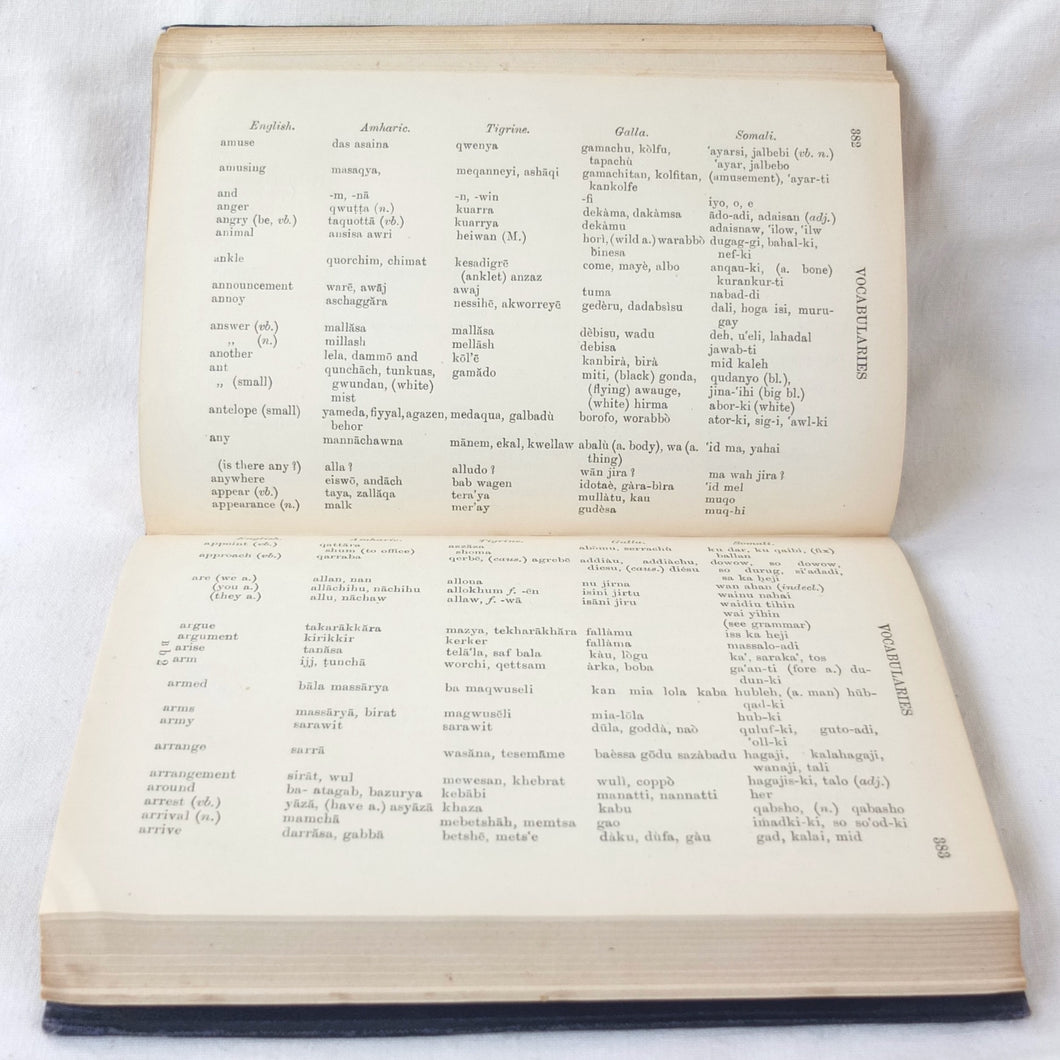 382 VOCABULARIES
English. Amharic. Tigrine. Galla. Somali.
amuse das asaina qwenya gamachu, kòlfu, 'ayarsi, jalbebi (vb. n.)
tapachù 'ayar, jalbebo
amusing masaqya, meqanneyi, ashāqi gamachitan, kolfitan, (amusement), 'ayar-ti
kankolfe
and -m, -nā -n, -win -fi iyo, o, e
anger qwuṭṭa (n.) kuarra dekàma, dakàmsa ādo-adi, adaisan (adj.)
angry (be, vb.) taquottā (vb.) kuarrya dekàmu adaisnaw, 'ilow, 'ilw
animal ansisa awri heiwan (M.) horì, (wild a.) warabbò dugag-gi, bahal-ki,
binesa nef-ki
ankle quorchim, chimat kesadigrē come, mayè, albo anqau-ki, (a. bone)
(anklet) anzaz kurankur-ti
announcement warē, awāj awaj tuma nabad-di
annoy aschaggăra nessihē, akworreyē gedèru, dadabsìsu dali, hoga isi, muru-
gay
answer (vb.) mallăsa mallăsa dèbisu, wadu deh, u'eli, lahadal
„ (n.) millash mellāsh debisa jawab-ti
another lela, dammō and kōl'ē kanbirà, birà mid kaleh
ant qunchāch, tunkuas, gamădo miti, (black) gonda, qudanyo (bl.),
„ (small) gwundan, (white) (flying) awauge, jina-'ihi (big bl.)
mist (white) hirma abor-ki (white)
antelope (small) yameda, fiyyal, agazen, medaqua, galbadù borofo, worabbò ator-ki, sig-i, 'awl-ki
behor
any mannāchawna mānem, ekal, kwellaw abalù (a. body), wa (a. 'id ma, yahai
thing)
(is there any ?) alla ? alludo ? wān jira ? ma wah jira ?
anywhere eiswō, andāch bab wagen idotaè, gàra-bìra 'id mel
appear (vb.) taya, zallăqa tera'ya mullàtu, kau muqo
appearance (n.) malk mer'ay gudèsa muq-hi
English. Amharic. Tigrine. Galla. Somali.
appoint (vb.) qattăra aszăsa abòmu, serrachù ku dar, ku qaibi, (fix)
shum (to office) shoma ballan
approach (vb.) qarraba qerbē, (caus.) agrebē addiàu, addiàchu, dowow, so dowow,
dièsu, (caus.) dièsu so durug, si'adadi,
sa ka heji
are (we a.) allan, nan allona nu jirna wan ahan (indecl.)
(you a.) allāchihu, nāchihu allokhum f. -ēn isini jirtu wainu nahai
(they a.) allu, nāchaw allaw, f. -wā isāni jiru waidiu tihin
wai yihin
(see grammar)
argue takarăkkăra mazya, tekharăkhăra fallàmu iss ka heji
argument kirikkir kerker fallàma massalo-adi
arise tanăsa telā'la, saf bala kàu, lògu ka', saraka', tos
arm ijj, ṭunchā worchi, qettsam àrka, boba ga'an-ti (fore a.) du-
dun-ki
armed bāla massārya ba maqwuseli kan mia lola kaba hubleh, (a. man) hūb-
qad-ki
arms massāryā, birat magwusēli mia-lōla hub-ki
army sarawit sarawit dūla, goddà, naò quluf-ki, guto-adi,
'oll-ki
arrange sarrā wasăna, tesemāme baèssa gōdu sazàbadu hagaji, kalahagaji,
wanaji, tali
arrangement sirāt, wul mewesan, khebrat wulì, coppò hagajis-ki, talo (adj.)
around ba- atagab, bazurya kebābi manatti, nannatti her
arrest (vb.) yāzā, (have a.) asyāzā khaza kabu qabsho, (n.) qabasho
arrival (n.) mamchā mebetshāh, memtsa gao imadki-ki, so so'od-ki
arrive darrăsa, gabbā betshē, mets'e dàku, dùfa, gàu gad, kalai, mid
VOCABULARIES 383